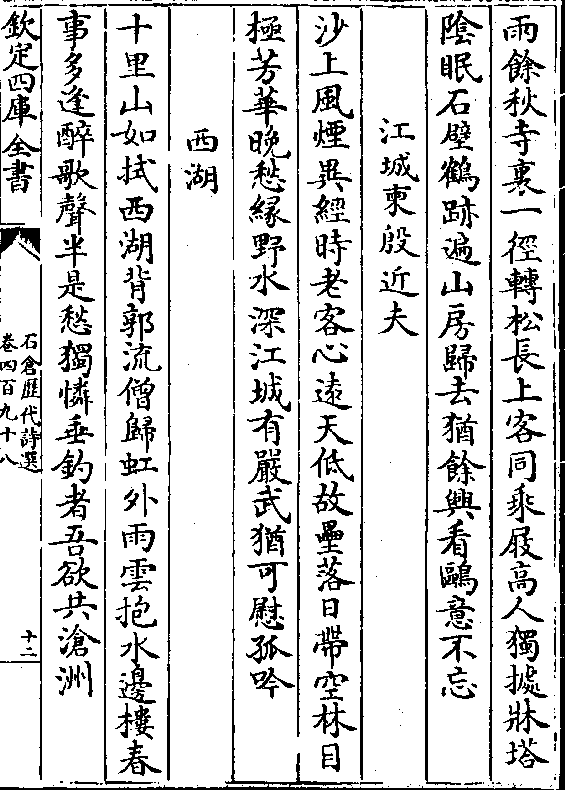 雨餘秋寺裏一徑轉松長上客同乘屐高人獨據牀塔
陰眠石壁鶴跡遍山房歸去猶餘興看鷗意不忘
江城柬殷近夫
沙上風煙異經時老客心遠天低故壘落日帶空林目
極芳華晚愁緣野水深江城有嚴武猶可慰孤吟
西湖
十里山如拭西湖背郭流僧歸虹外雨雲抱水邊樓春
事多逢醉歌聲半是愁獨憐垂釣者吾欲共滄洲
欽定四庫全書
石倉歷代詩選
卷四百九十八
十二